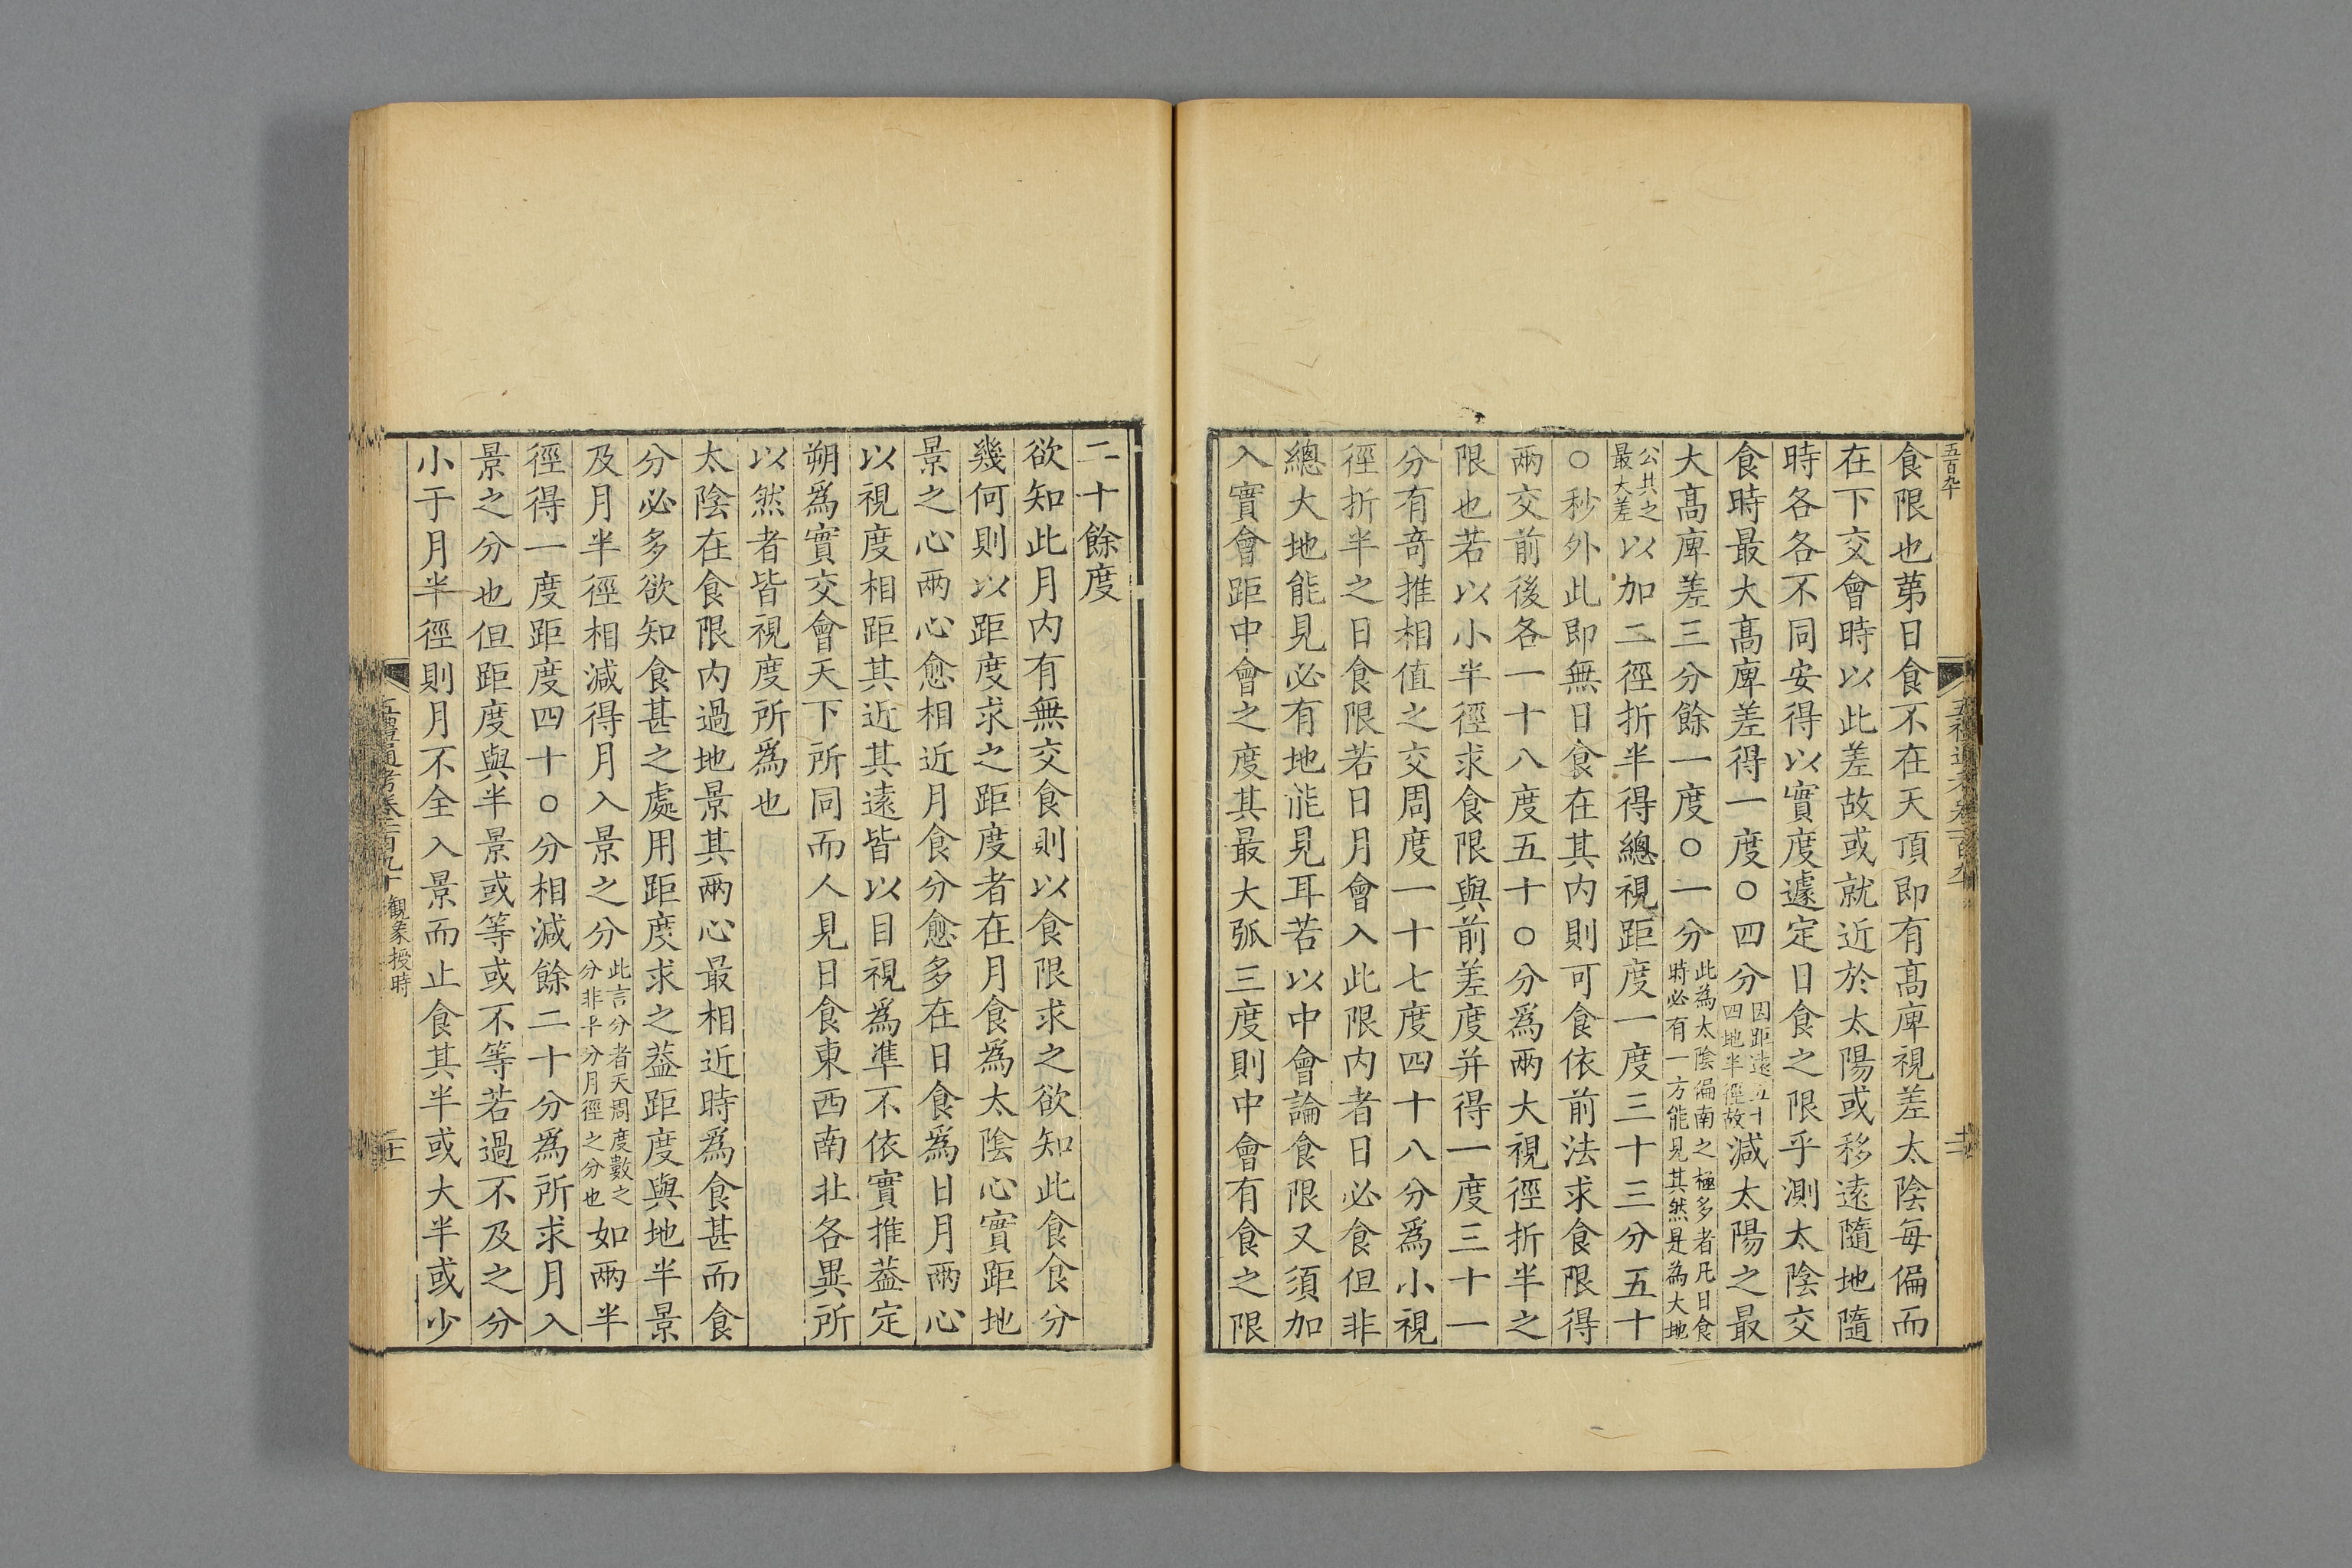 五百九十
食限也苐日食不在天頂即有高庳視差太陰每偏而
在下交會時以此差故或就近於太陽或移遠隨地隨
時各各不同安得以實度遽定日食之限乎測太陰交
食時最大高庳差得一度〇四分因距遠五十四地半徑故減太陽之最
大高庳差三分餘一度〇一分此為太陰偏南之極多者凡日食時必有一方能見其然是為大地
公共之最大差以加二徑折半得總視距度一度三十三分五十
〇秒外此即無日食在其內則可食依前法求食限得
兩交前後各一十八度五十〇分爲兩大視徑折半之
限也若以小半徑求食限與前差度并得一度三十一
分有奇推相值之交周度一十七度四十八分爲小視
徑折半之日食限若日月會入此限內者日必食但非
總大地能見必有地能見耳若以中會論食限又須加
入實會距中會之度其最大弧三度則中會有食之限
二十餘度
欲知此月内有無交食則以食限求之欲知此食食分
幾何則以距度求之距度者在月食爲太陰心實距地
景之心兩心愈相近月食分愈多在日食爲日月兩心
以視度相距其近其遠皆以目視爲準不依實推葢定
朔爲實交會天下所同而人見日食東西南北各異所
以然者皆視度所爲也
太陰在食限内過地景其兩心最相近時爲食甚而食
分必多欲知食甚之處用距度求之葢距度與地半景
及月半徑相減得月入景之分此言分者天周度數之分非平分月徑之分也如兩半
徑得一度距度四十〇分相減餘二十分爲所求月入
景之分也但距度與半景或等或不等若過不及之分
小于月半徑則月不全入景而止食其半或大半或少
五禮通考卷一百九十 觀象授時